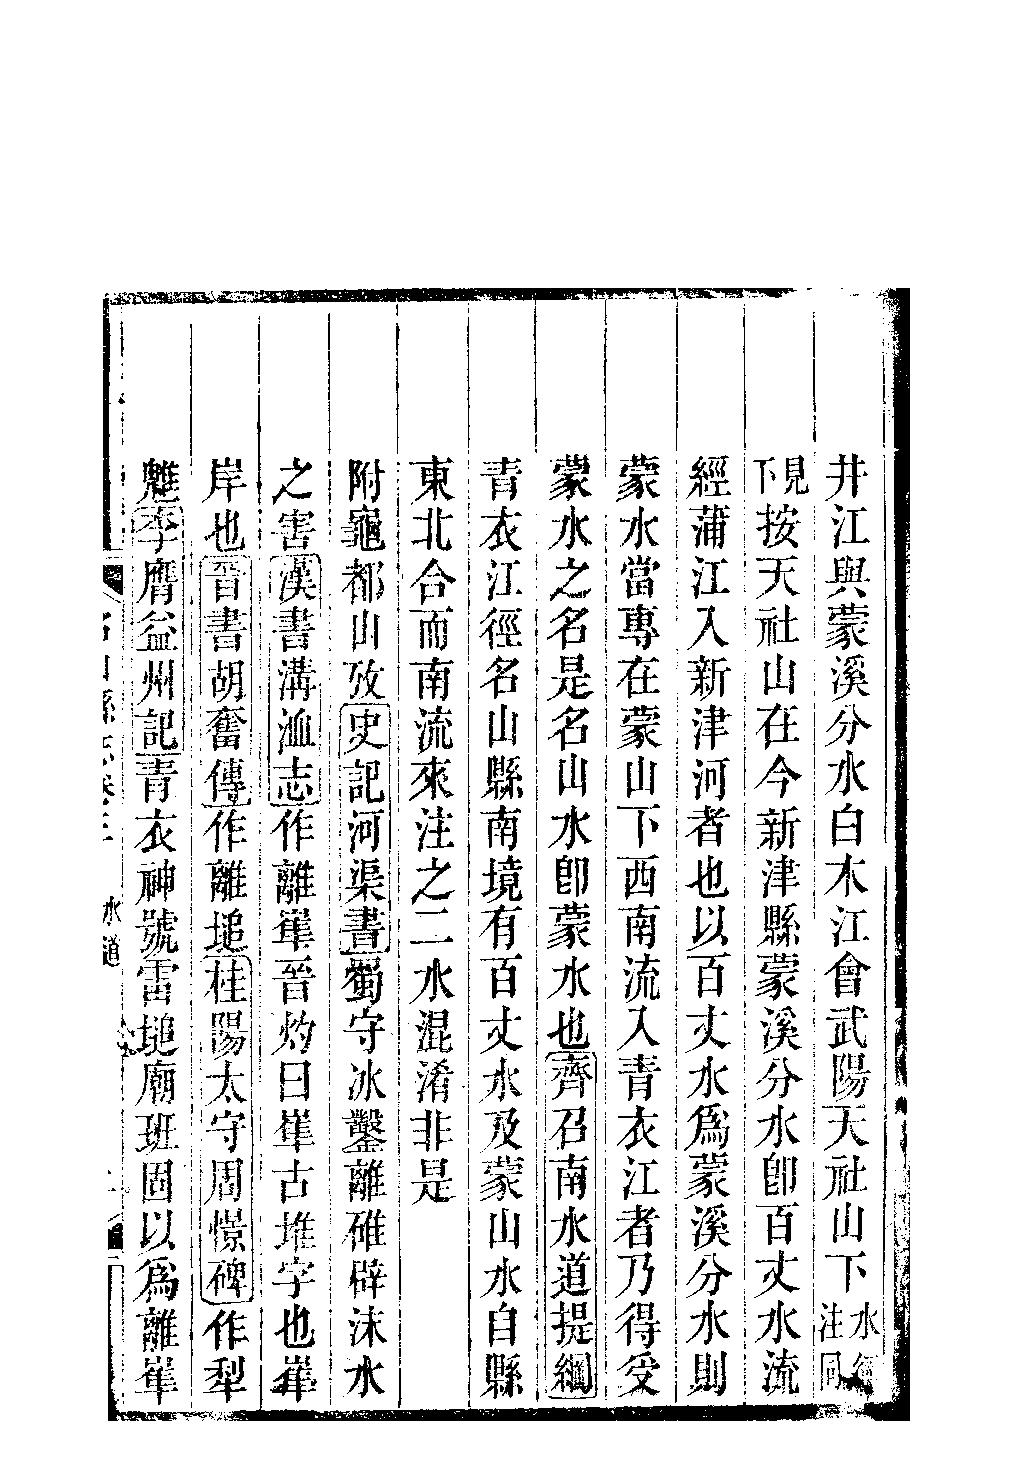 井江與蒙溪分水白木江會武陽天社山下水經注同
見下按天社山在今新津縣蒙溪分水卽百丈水流
經蒲江入新津河者也以百丈水爲蒙溪分水則
蒙水當專在蒙山下西南流入青衣江者乃得受
蒙水之名是名山水卽蒙水也齊召南水道提綱
青衣江徑名山縣南境有百丈水及蒙山水自縣
東北合而南流來注之二水混淆非是
附龜都山攷史記河渠書蜀守冰鑿離碓辟沫水
之害漢書溝洫志作離𡹐晉灼曰𡹐古堆字也𡹐
岸也晉書胡奮傳作離塠桂陽太守周憬碑作犁
魋李膺益州記青衣神號雷塠廟班固以爲離𡹐
名山縣志卷三 水道